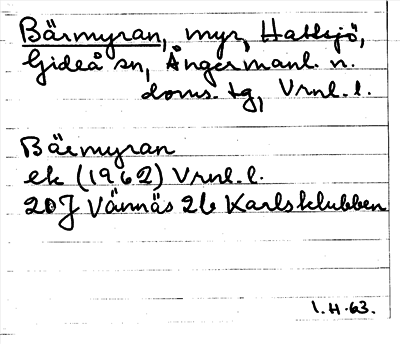 Bärmyran, myr, Hattsjö,
Gideå sn, Ångermanl. n.
doms. tg, Vrnl. l.
Bärmyran
ek (1962) Vrnl. l.
20J Vännäs 2b Karlsklubben
1.H.63.